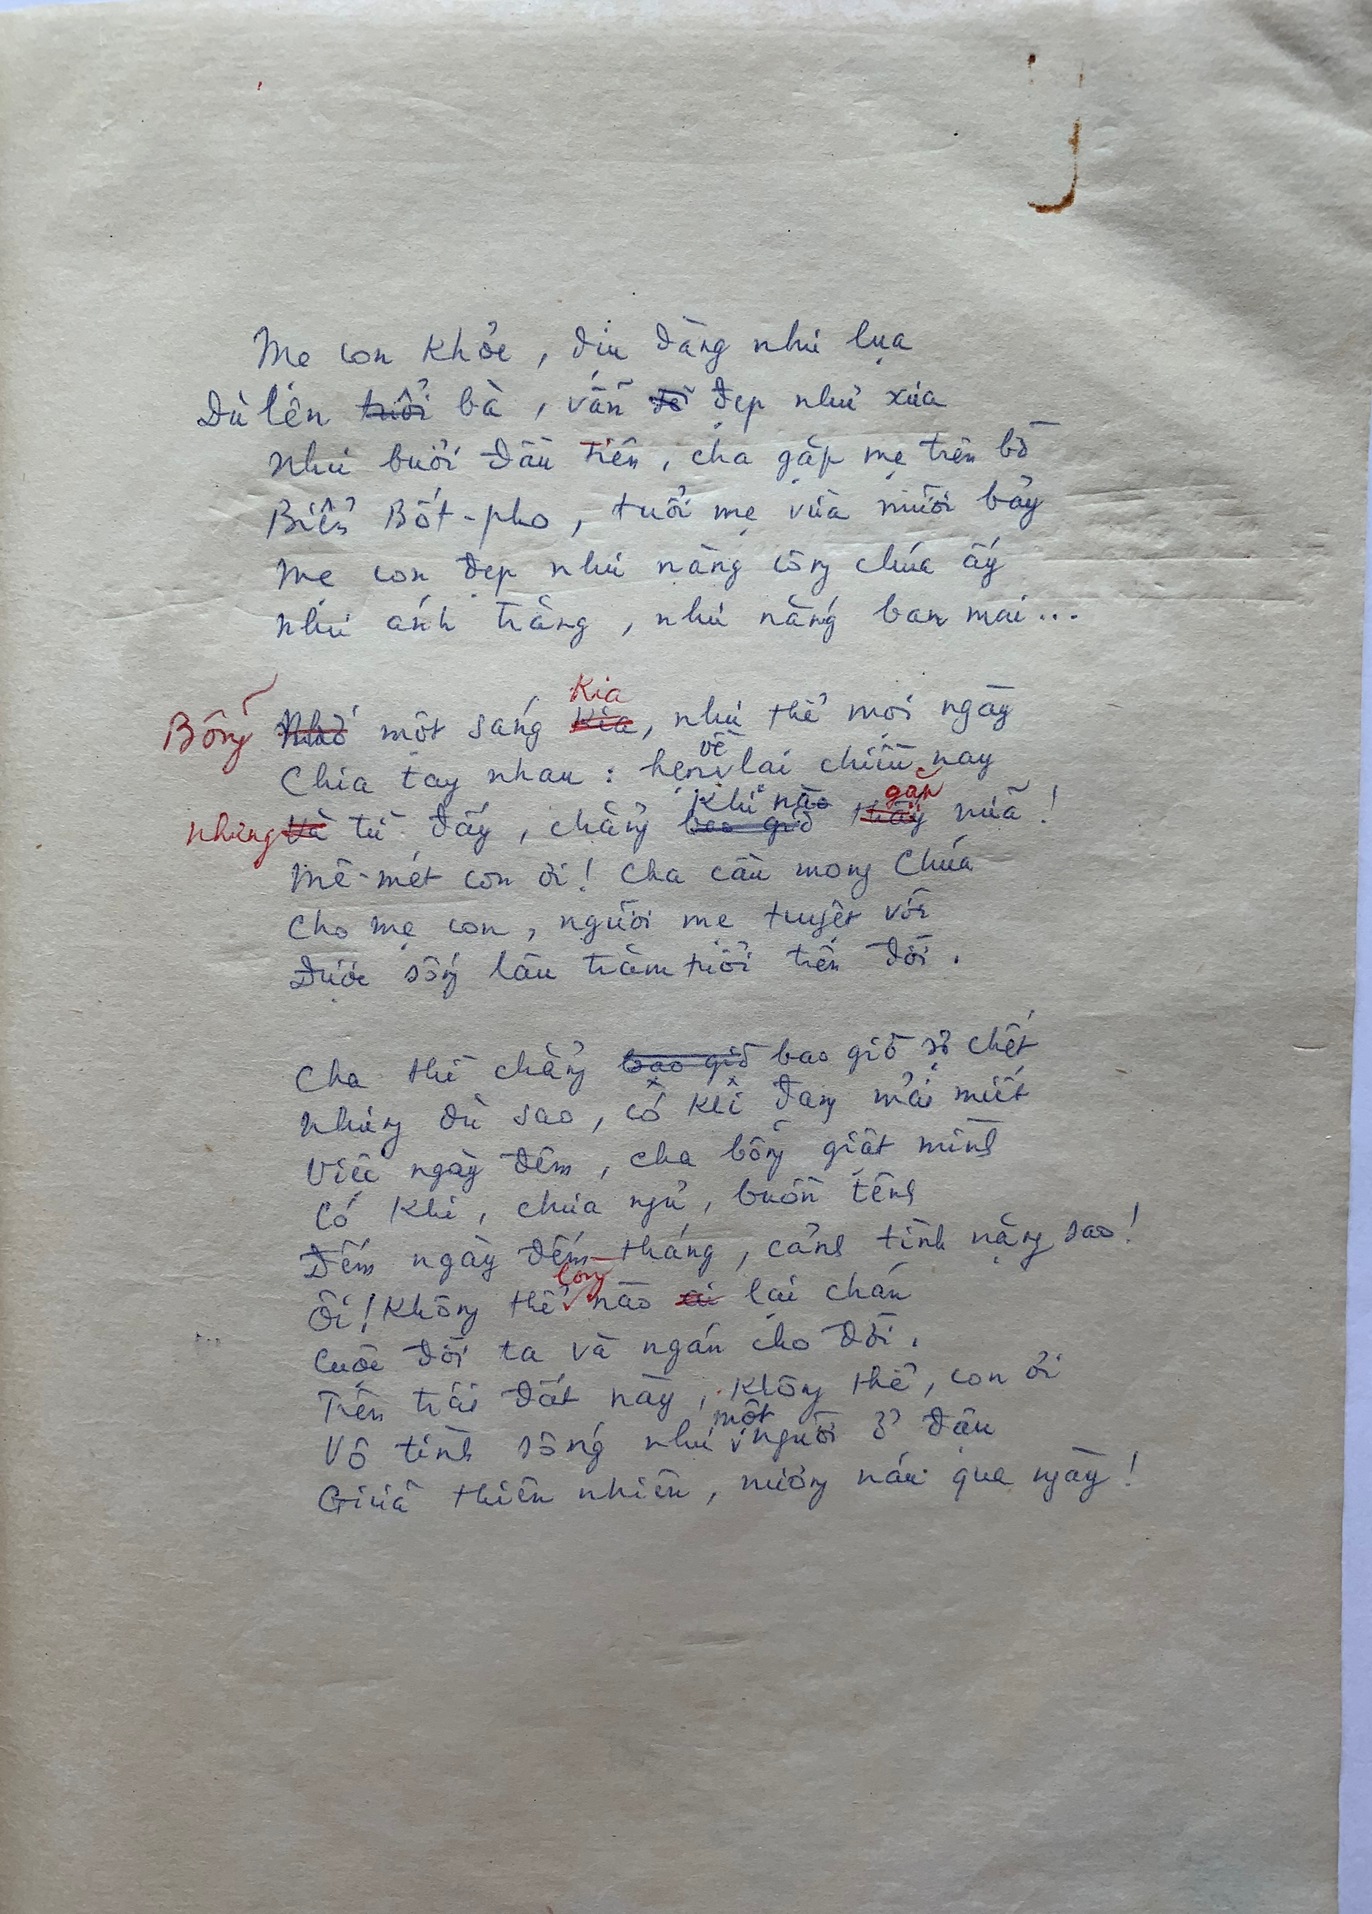 Mẹ con khỏe, dịu dàng như lụa
Dù lên tuổi bà, vẫn đẹp như xưa
Như buổi đầu tiên, cha gặp mẹ trên bờ
Biển Bốt-pho, tuổi mẹ vừa mười bảy
Mẹ con đẹp như nàng công chúa ấy
Như ánh trăng, như nắng ban mai...
Bỗng Nhớ một sáng kia Kia, như thể mọi ngày
Chia tay nhau: hẹn về lại chiều nay
nhưng Và từ đấy, chẳng bao giờ khi nào thấy gặp nữa!
Mê-mét con ơi! Cha cầu mong Chúa
Cho mẹ con, người mẹ tuyệt vời
Được sống lâu trăm tuổi trên đời.
Cha thì chẳng bao giờ bao giờ sợ chết
Nhưng dù sao, có khi đang mải miết
Việc ngày đêm, cha bỗng giật mình
Có khi, chưa ngủ, buồn tênh
Đếm ngày đếm tháng, cảnh tình nặng sao!
Ôi! Không thể lòng nào ai lại chán
Cuộc đời ta và ngán cho đời.
Trên trái đất này, không thể, con ơi
Vô tình sống như một người ở đậu
Giữa thiên nhiên, nương náu qua ngày!